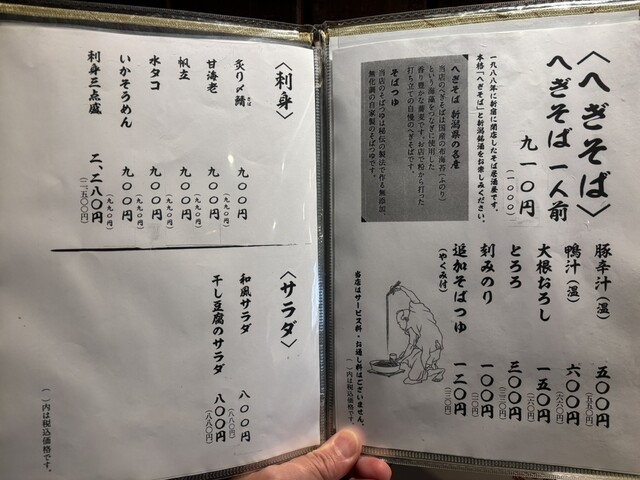 〈へぎそば〉
へぎそば 一人前
九一〇円
(一〇〇〇)
一九八八年に新宿に開店したそば居酒屋です。
本格「へぎそば」と新潟銘酒をお楽しみください。
へぎそば 新潟県の名産
当店のへぎそばは国産の布海苔(ふのり)
という海藻をつなぎに使用した
香り豊かな蕎麦です。お店で粉から打った
打ち立ての自慢のへぎそばです。
そばつゆ
当店のそばつゆは秘伝の製法で作る無添加、
無化調の自家製のそばつゆです。
豚辛汁(温) 五〇〇円
(五五〇円)
鴨汁(温) 六〇〇円
(六六〇円)
大根おろし 一五〇円
とろろ 三〇〇円
刻みのり 一〇〇円
追加そばつゆ 一二〇円
(やくみ付)
当店はサービス料・お通し料はございません。
( )内は税込価格です。
〈刺身〉
炙り〆鯖 九〇〇円
(九九〇円)
甘海老 九〇〇円
(九九〇円)
帆立 九〇〇円
(九九〇円)
水タコ 九〇〇円
(九九〇円)
いかそうめん 九〇〇円
(九九〇円)
刺身三点盛 二、二八〇円
〈サラダ〉
和風サラダ 八〇〇円
(八八〇円)
干し豆腐のサラダ 八〇〇円
(八八〇円)
( )内は税込価格です。